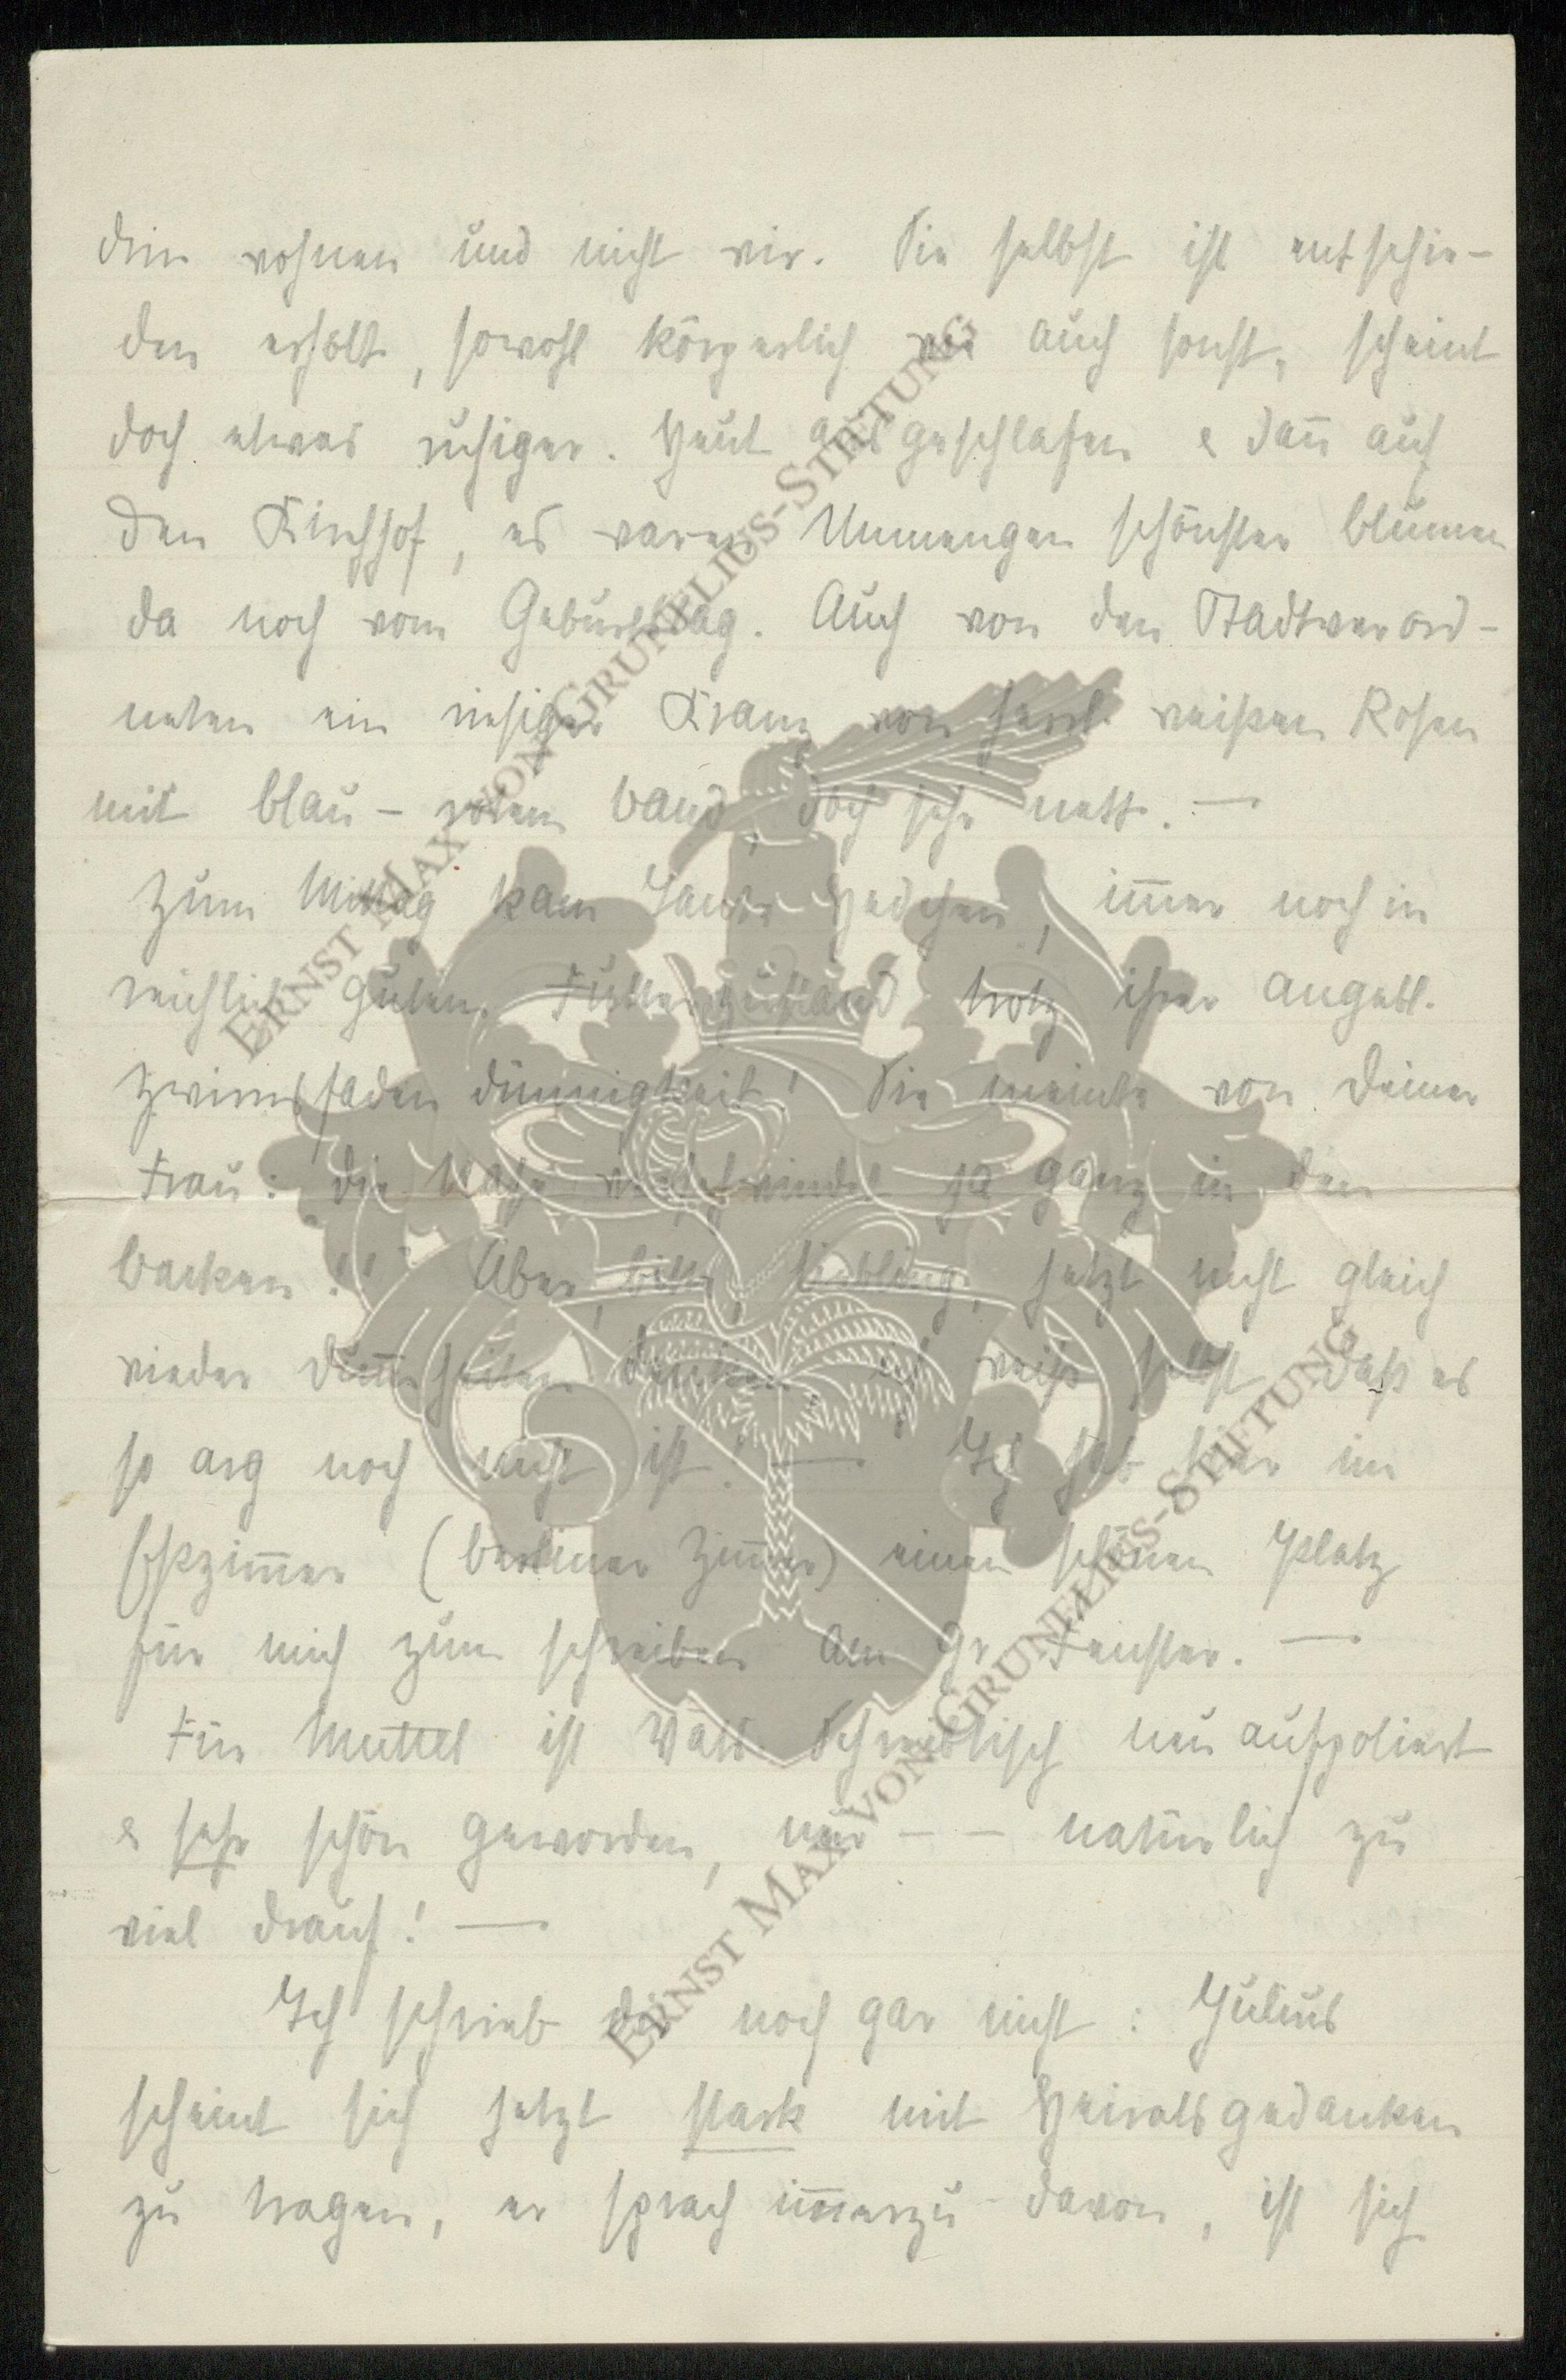 drin wohnen und nicht wir. Sie selbst ist entschie-
den erholt, sowohl körperlich wie auch sonst, scheint
doch etwas ruhiger. Heut ausgeschlafen & dann auf
den Kirchhof, es waren Unmengen schönster Blumen
da noch vom Geburtstag. Auch von den Stadtverord-
neten ein riesiger Kranz von herrl. weißen Rosen
mit blau-rotem Band, doch sehr nett. —
Zum Mittag kam Tante Hedchen, immer noch in
reichlich gutem Futterzustand trotz ihrer angebl.
Zwirnsfaden dünnigkeit! Sie meinte von Deiner
Frau: die Nase verschwindet ja ganz in den
Backen!! Aber, bitte, Liebling, jetzt nicht gleich
wieder Dummheiten denken, ich weiß selbst, daß es
so arg noch nicht ist. — Ich hab hier im
Eßzimmer (Berliner Zimmer) einen schönen Platz
für mich zum schreiben am gr. Fenster. —
Für Muttel ist Vatis Schreibtisch neu aufpoliert
& sehr schön geworden, nur – – natürlich zu
viel drauf! —
Ich schrieb Dir noch gar nicht: Julius
scheint sich jetzt stark mit Heiratsgedanken
zu tragen, er sprach immerzu davon, ist sich
ERNST MAX VON GRUNELIUS-STIFTUNG
ERNST MAX VON GRUNELIUS-STIFTUNG